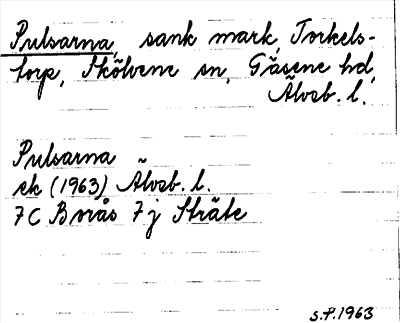 Pulsarna, sank mark, Torkels-
torp, Skölvene sn, Gäsene hd,
Älvsb. l.
Pulsarna
ek (1963) Älvsb. l.
7C Borås 7j Sträte
S.P. 1963